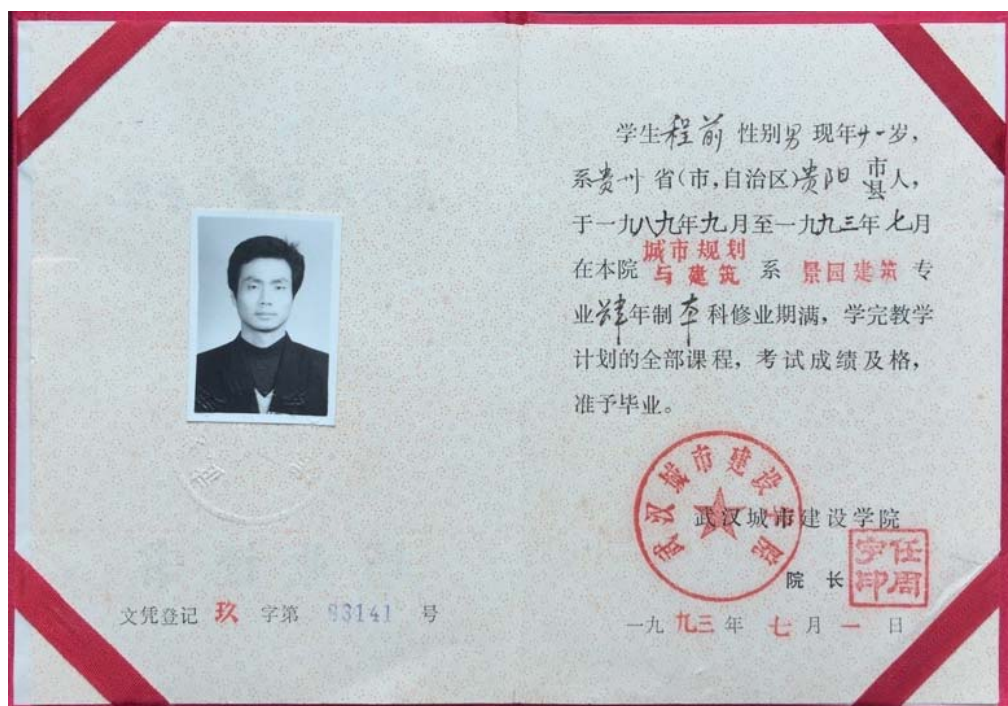 学生程前 性别男 现年廿一岁,
系贵州省(市,自治区)贵阳市县人,
于一九八九年九月至一九九三年七月
在本院城市规划与建筑系 景园建筑专
业肆年制本科修业期满,学完教学
计划的全部课程,考试成绩及格,
准予毕业。
武汉城市建设学院
武汉城市建设学院
院长
任周宁印
一九九三年七月一日
文凭登记 玖 字第 93141 号